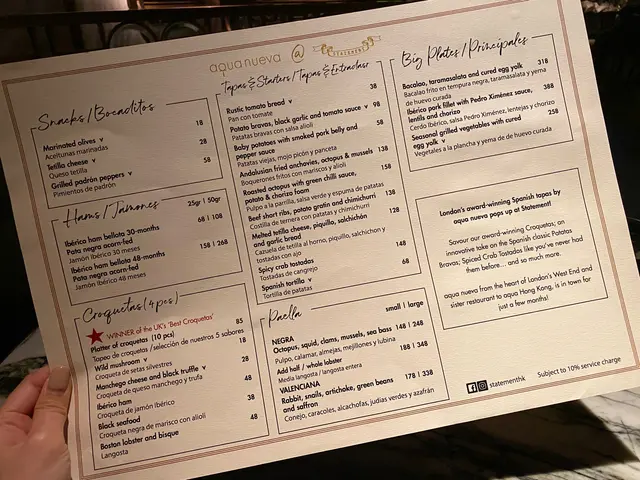 aqua nueva @ STATEMENT
Snacks/Bocaditos
Marinated olives v 18
Aceitunas marinadas
Tetilla cheese v 28
Queso tetilla
Grilled padrón peppers v 58
Pimientos de padrón
Hams/Jamones 25gr | 50gr
Ibérico ham bellota 30-months 68 | 108
Pata negra acorn-fed
Jamón Ibérico 30 meses
Ibérico ham bellota 48-months 158 | 268
Pata negra acorn-fed
Jamón Ibérico 48 meses
Croquetas (4 pcs)
WINNER of the UK's 'Best Croquetas'
Platter of croquetas (10 pcs) 85
Tapeo de croquetas/selección de nuestros 5 sabores
Wild mushroom v 18
Croqueta de setas silvestres
Manchego cheese and black truffle v 28
Croqueta de queso manchego y trufa
Ibérico ham 48
Croqueta de jamón Ibérico
Black seafood 38
Croqueta negra de marisco con alioli
Boston lobster and bisque 48
Langosta
Tapas & Starters/Tapas & Entradas
Rustic tomato bread v 38
Pan con tomate
Patata bravas, black garlic and tomato sauce v 98
Patatas bravas con salsa alioli
Baby potatoes with smoked pork belly and 58
pepper sauce
Patatas viejas, mojo picón y panceta
Andalusian fried anchovies, octopus & mussels 138
Boquerones fritos con mariscos y alioli
Roasted octopus with green chilli sauce, 158
potato & chorizo foam
Pulpo a la parrilla, salsa verde y espuma de patatas
Beef short ribs, potato gratin and chimichurri 138
Costilla de ternera con patatas y chimichurri
Melted tetilla cheese, piquillo, salchichón 128
and garlic bread
Cazuela de tetilla al horno, piquillo, salchichon y
tostadas con ajo
Spicy crab tostadas 148
Tostadas de cangrejo
Spanish tortilla v 68
Tortilla de patatas
Paella small | large
NEGRA
Octopus, squid, clams, mussels, sea bass 148 | 248
Pulpo, calamar, almejas, mejillones y lubina
Add half / whole lobster 188 | 348
Media langosta / langosta entera
VALENCIANA
Rabbit, snails, artichoke, green beans 178 | 338
and saffron
Conejo, caracoles, alcachofas, judías verdes y azafrán
Big Plates/Principales
Bacalao, taramasalata and cured egg yolk 318
Bacalao frito en tempura negra, taramasalata y yema
de huevo curada
Ibérico pork fillet with Pedro Ximénez sauce, 388
lentils and chorizo
Cerdo Ibérico, salsa Pedro Ximénez, lentejas y chorizo
Seasonal grilled vegetables with cured 258
egg yolk v
Vegetales a la plancha y yema de huevo curada
London's award-winning Spanish tapas by
aqua nueva pops up at Statement!
Savour our award-winning Croquetas; an
innovative take on the Spanish classic Patatas
Bravas; Spiced Crab Tostadas like you've never had
them before... and so much more.
aqua nueva from the heart of London's West End and
sister restaurant to aqua Hong Kong, is in town for
just a few months!
statementhk Subject to 10% service charge